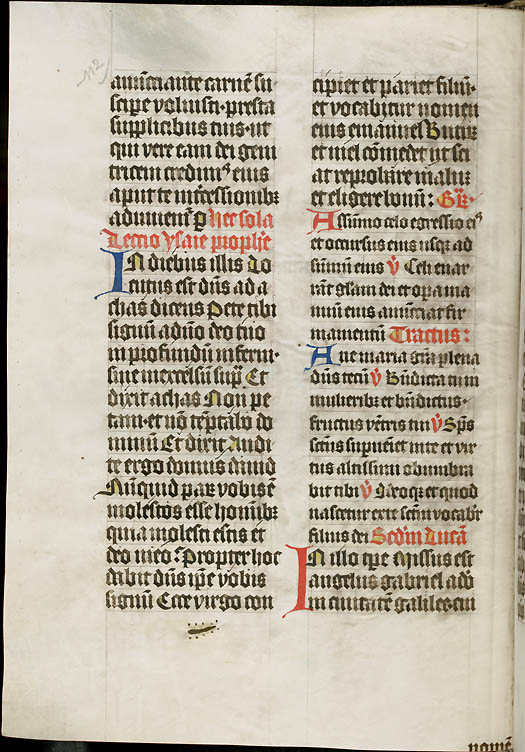 112
anũciante carnē su
scipe voluisti · presta
supplicibus tuis · ut
qui vere eam dei geni
tricem credim᷒ eius
aput te int̃cessionibꝫ
adiuuem᷒ ꝑ hec sola
Lectio ysaie prophe
IN diebus illis Lo
cutus est dñs ad a
chas dicens Pete tibi
signũ a dño deo tuo
in profundũ inferni ·
siue in excelsũ sup̃ Et
dixit achas Non pe
tam · et nõ tẽptabo do
minũ Et dixit Audi
te ergo domus dauid
Nũnquid parꝫ vobis ẽ
molestos esse homibꝫ
quia molesti estis et
deo meo · Propter hoc
dabit dñs ip̃e vobis
signũ Ecce virgo con
cipiet et pariet filiũ ·
et vocabitur nomen
eius emanuel Butirꝫ
et mel cõmedet ut sci
at reprobare malũ
et eligere bonũ : Gr̃ ·
A sũmo celo egressio ei᷒
et occursus eius usqꝫ ad
sũmũ eius ℣ Celi enar
rãt glam dei et opa ma
nuũ eius anũciat fir
mamentũ Tractus :
Aue maria gr̃a plena
dñs tecũ ℣ Bñdicta tu in
mulieribꝫ et bñdictus ·
fructus vẽtris tui ℣ Sp̃s
sc̃us supueniet in te et vir
tus altissimi obumbra
bit tibi ℣ Ideoqꝫ et quod
nascetur ex te sc̃m vocabr̃
filius dei Scdm lucã
IN illo tp̃e Missus est
angelus gabriel a dõ
in ciuitatẽ galilee · cui
nomẽ